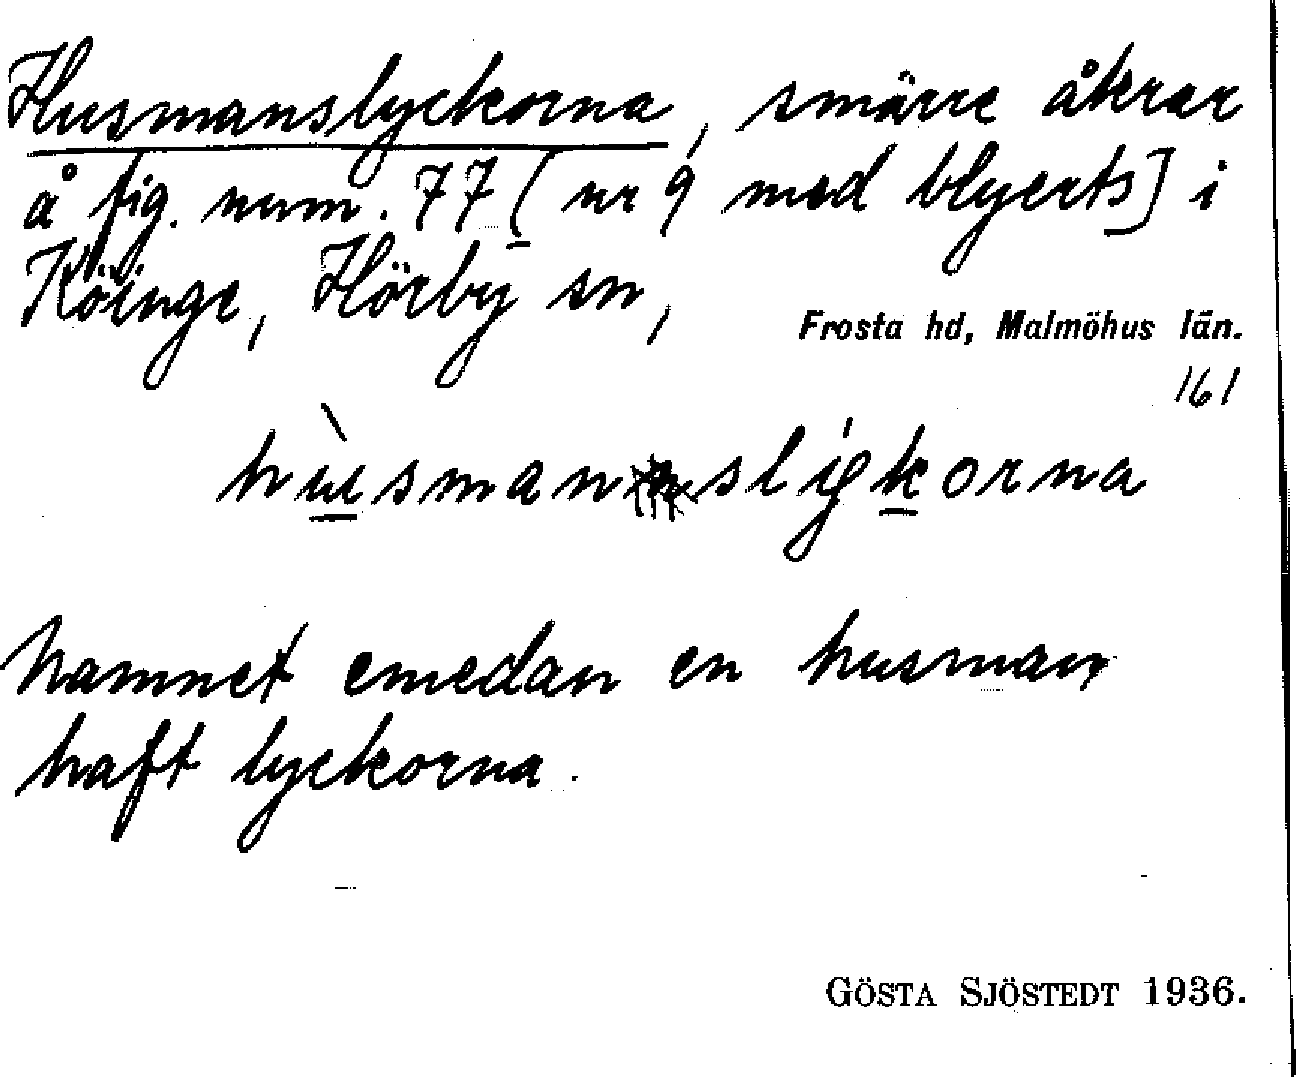 Husmanslyckorna, smärre åkrar
å fig. num. 77 [nr 9 med blyerts] i
Köinge, Hörby sn,
Frosta hd, Malmöhus län.
161
hùsmanslýkorna
Namnet emedan en husman
haft lyckorna.
GÖSTA SJÖSTEDT 1936.